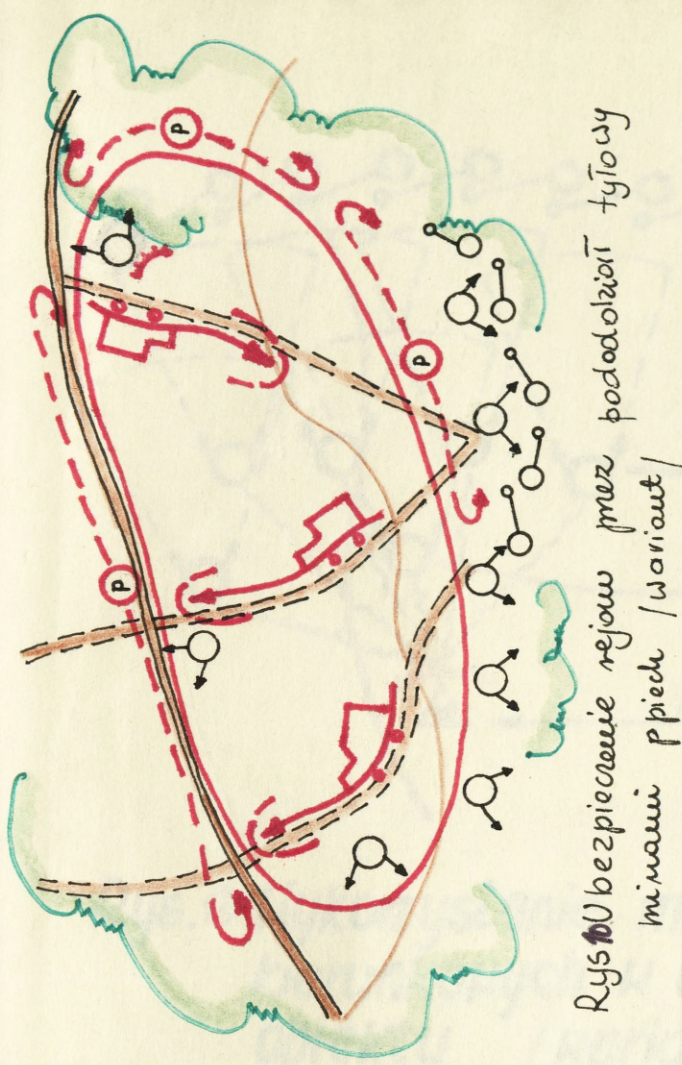 Rys 10 Ubezpieczenie rejonu przez pododdział tyłowy
minami ppiech /wariant/
P
P
P